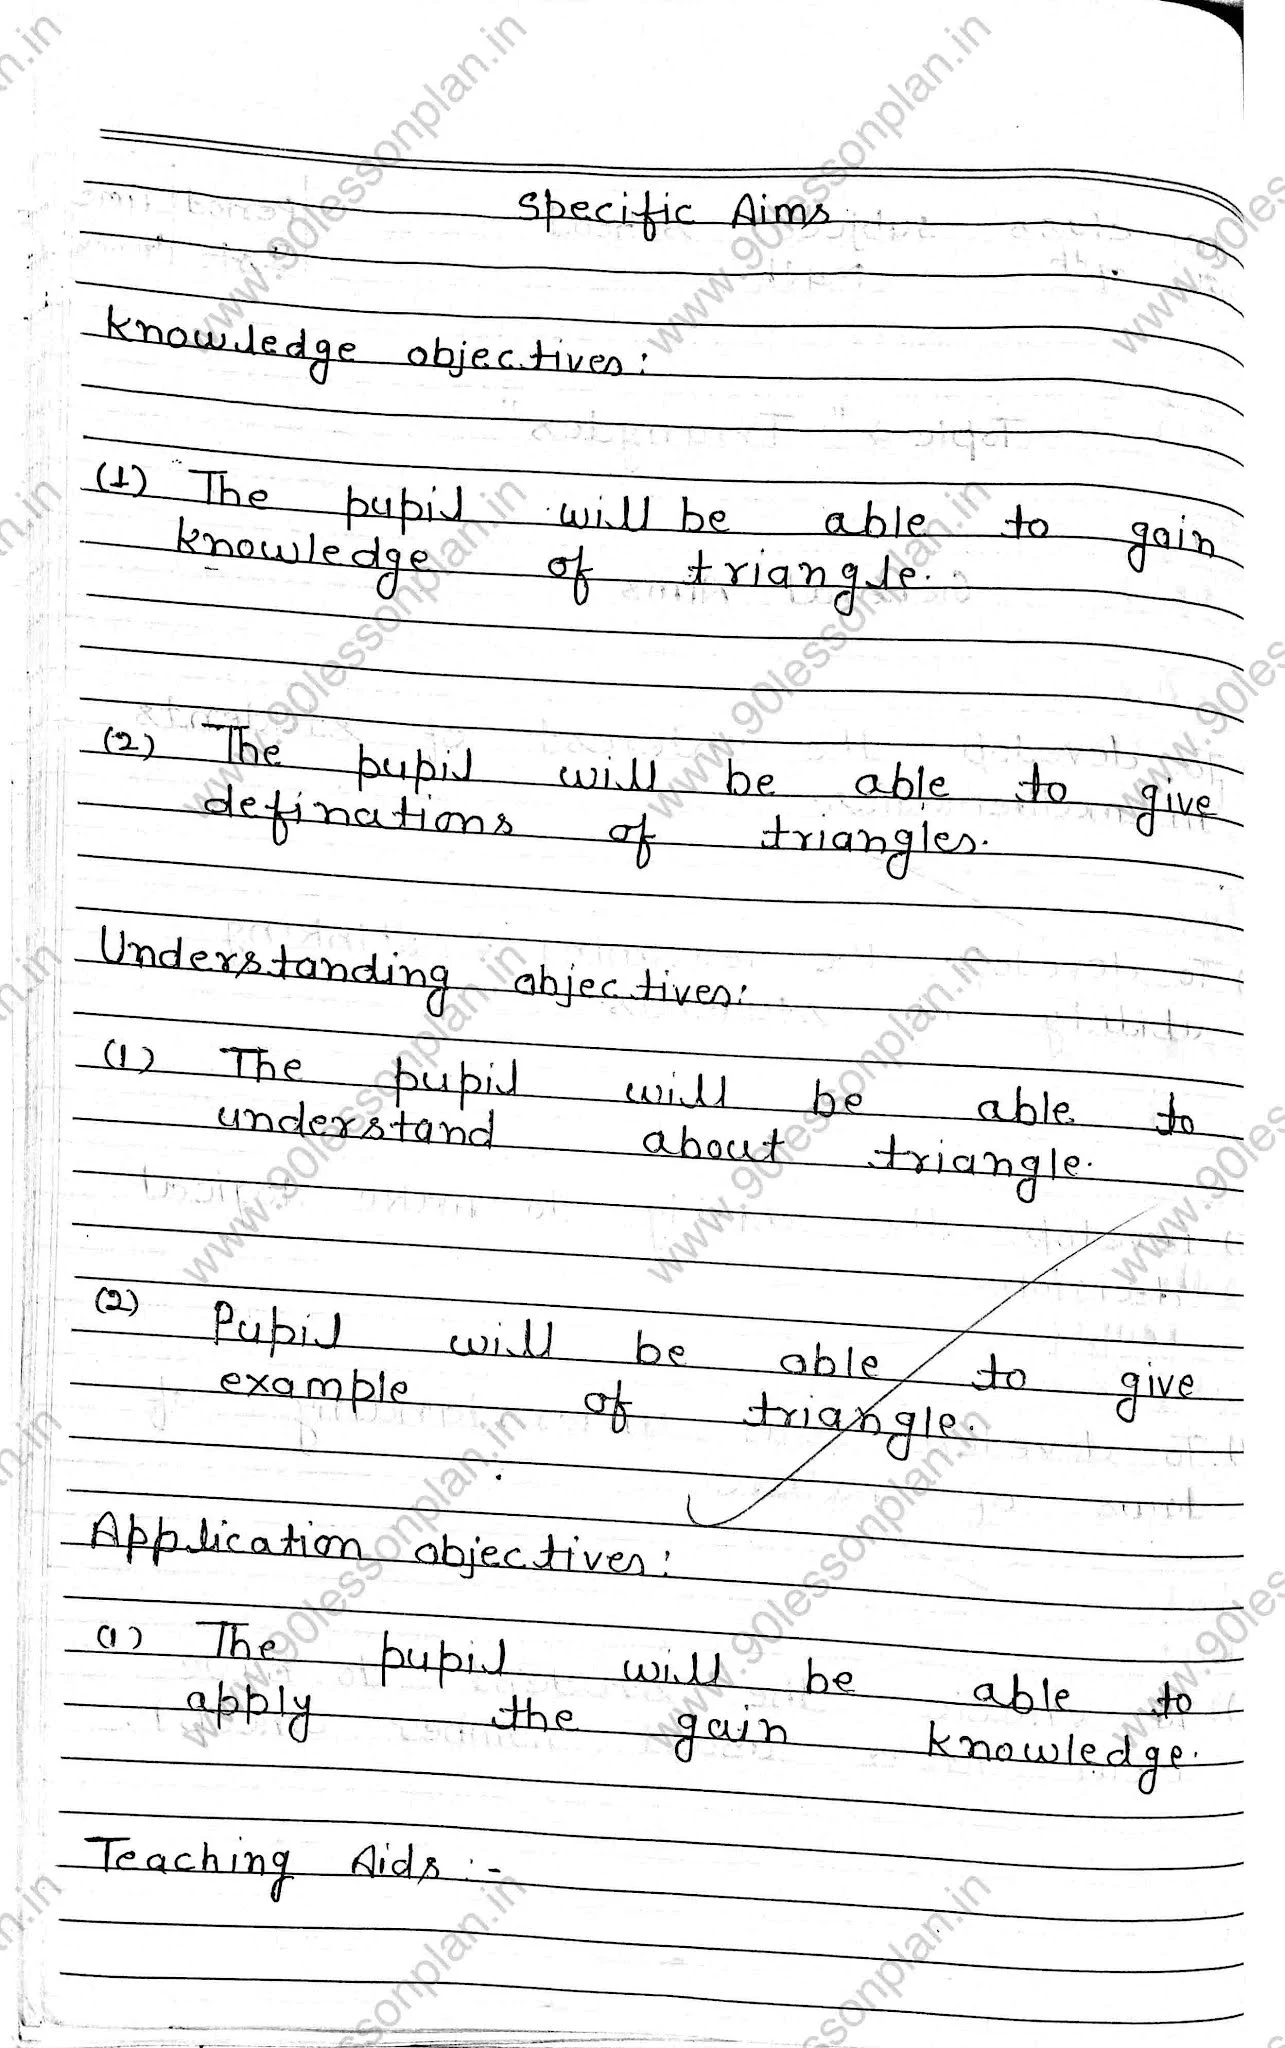 Specific Aims
Knowledge objectives:
(1) The pupil will be able to gain
knowledge of triangle.
(2) The pupil will be able to give
definations of triangles.
Understanding objectives:
(1) The pupil will be able to
understand about triangle.
(2) Pupil will be able to give
example of triangle.
Application objectives:
(1) The pupil will be able to
apply the gain knowledge.
Teaching Aids :-
www.90lessonplan.in